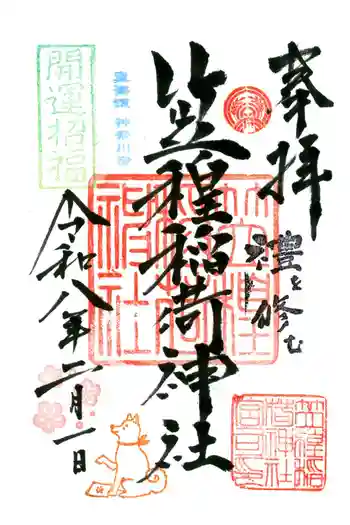 奉拝
禮を修む
笠䅣稲荷神社
笠䅣稲荷神社
笠䅣稲荷神社宮司之印
神奈川宿
開運招福
令和八年二月一日